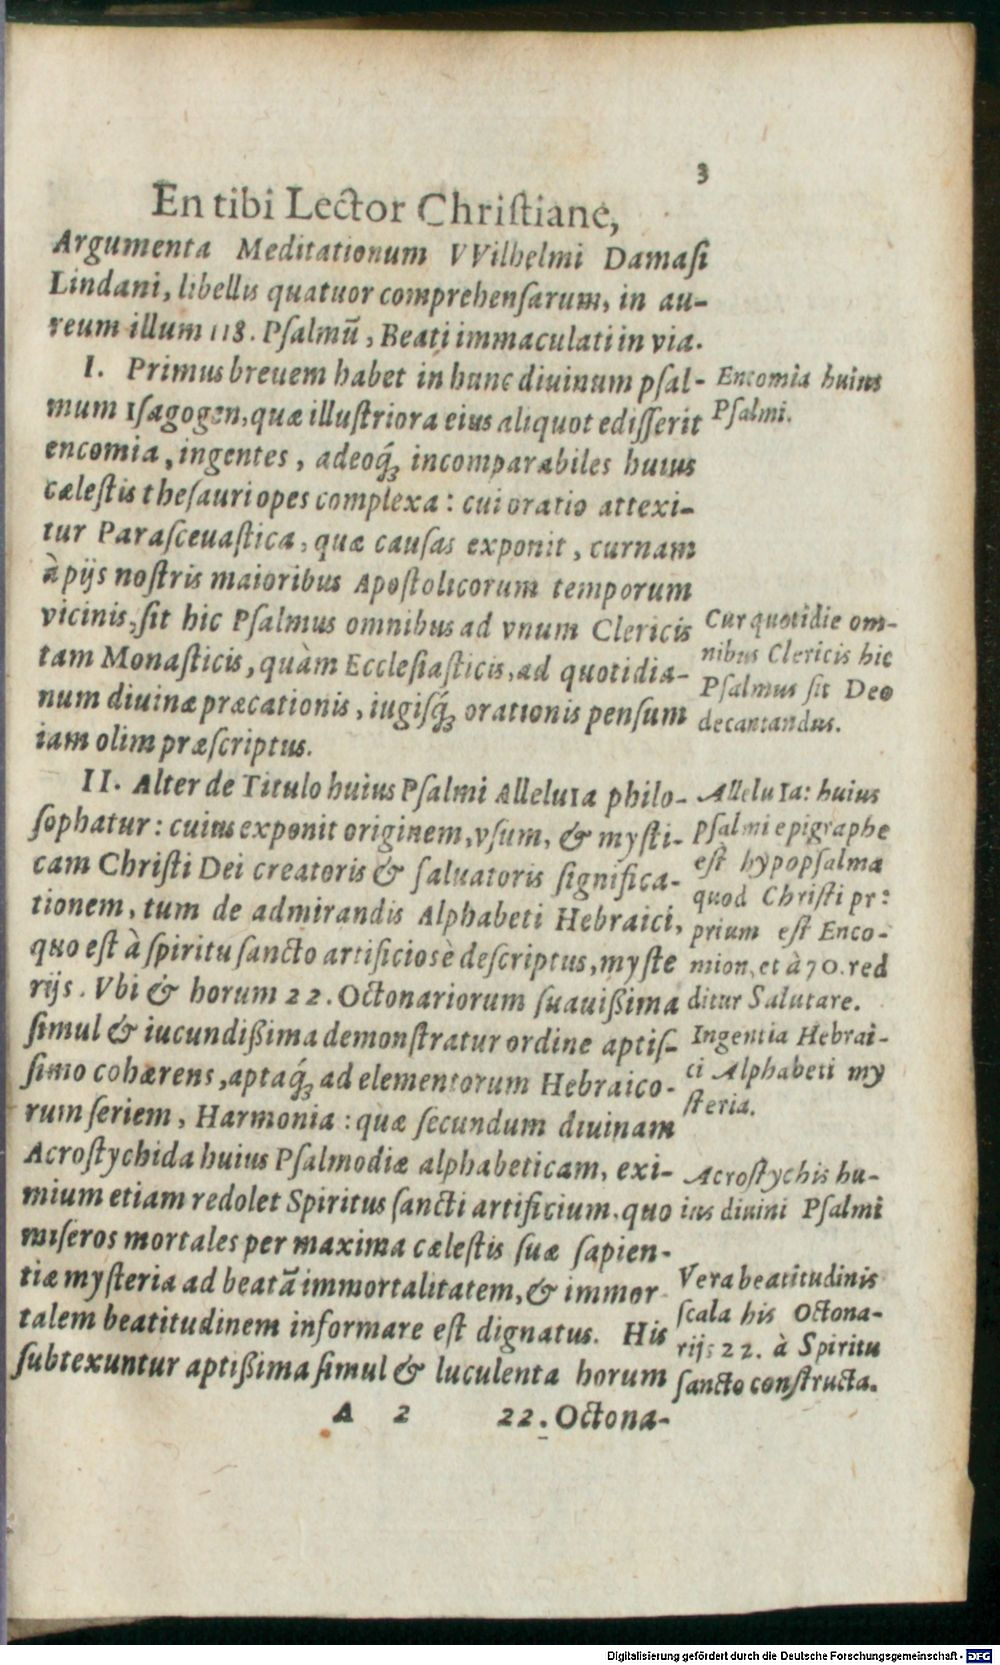 3
En tibi Lector Chriſtiane,
Argumenta Meditationum VVilhelmi Damaſi
Lindani, libellis quatuor comprehenſarum, in au-
reum illum 118. Pſalmū, Beati immaculati in via.
I. Primus breuem habet in hunc diuinum pſal-
mum Iſagogen, quæ illuſtriora eius aliquot ediſſerit
encomia, ingentes, adeoq́ꝫ incomparabiles huius
cæleſtis theſauri opes complexa: cui oratio attexi-
tur Paraſceuaſtica, quæ cauſas exponit, curnam
à pijs noſtris maioribus Apoſtolicorum temporum
vicinis, ſit hic Pſalmus omnibus ad vnum Clericis
tam Monaſticis, quàm Eccleſiaſticis, ad quotidia-
num diuinæ præcationis, iugiſq́ꝫ orationis penſum
iam olim præſcriptus.
Encomia huius
Pſalmi.
Cur quotidie om-
nibus Clericis hic
Pſalmus ſit Deo
decantandus.
II. Alter de Titulo huius Pſalmi AlleluIa philo-
ſophatur: cuius exponit originem, vſum, & myſti-
cam Chriſti Dei creatoris & ſaluatoris ſignifica-
tionem, tum de admirandis Alphabeti Hebraici,
quo eſt à ſpiritu ſancto artificiosè deſcriptus, myſte
rijs. Vbi & horum 22. Octonariorum ſuauißima
ſimul & iucundißima demonſtratur ordine aptiſ-
ſimo cohærens, aptaq́ꝫ ad elementorum Hebraico-
rum ſeriem, Harmonia: quæ ſecundum diuinam
Acroſtychida huius Pſalmodiæ alphabeticam, exi-
mium etiam redolet Spiritus ſancti artificium, quo
miſeros mortales per maxima cæleſtis ſuæ ſapien-
tiæ myſteria ad beatā immortalitatem, & immor
talem beatitudinem informare eſt dignatus. His
ſubtexuntur aptißima ſimul & luculenta horum
AlleluIa: huius
pſalmi epigraphe
eſt hypopſalma
quod Chriſti pr:
prium eſt Enco-
mion, et à 70. red
ditur Salutare.
Ingentia Hebrai-
ci Alphabeti my
ſteria.
Acroſtychis hu-
ius diuini Pſalmi
Vera beatitudinis
ſcala his Octona-
rijs 22. à Spiritu
ſancto conſtructa.
A 2 22. Octona-
Digitalisierung gefördert durch die Deutsche Forschungsgemeinschaft - DFG